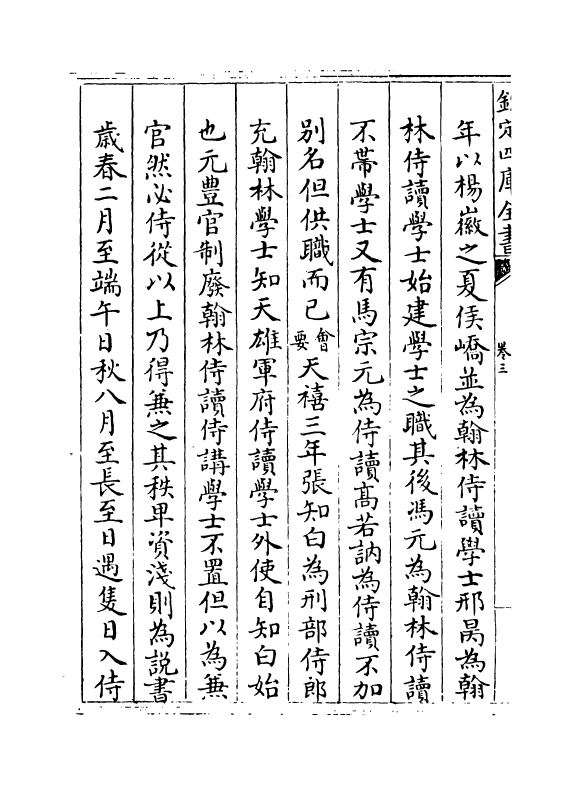 欽定四庫全書
卷三
年以楊徽之夏侯嶠並為翰林侍讀學士邢昺為翰
林侍讀學士始建學士之職其後馮元為翰林侍讀
不帶學士又有馬宗元為侍讀髙若訥為侍讀不加
别名但供職而已會要天禧三年張知白為刑部侍郎
充翰林學士知天雄軍府侍讀學士外使自知白始
也元豊官制廢翰林侍讀侍講學士不置但以為兼
官然必侍從以上乃得兼之其秩卑資淺則為説書
歲春二月至端午日秋八月至長至日遇隻日入侍